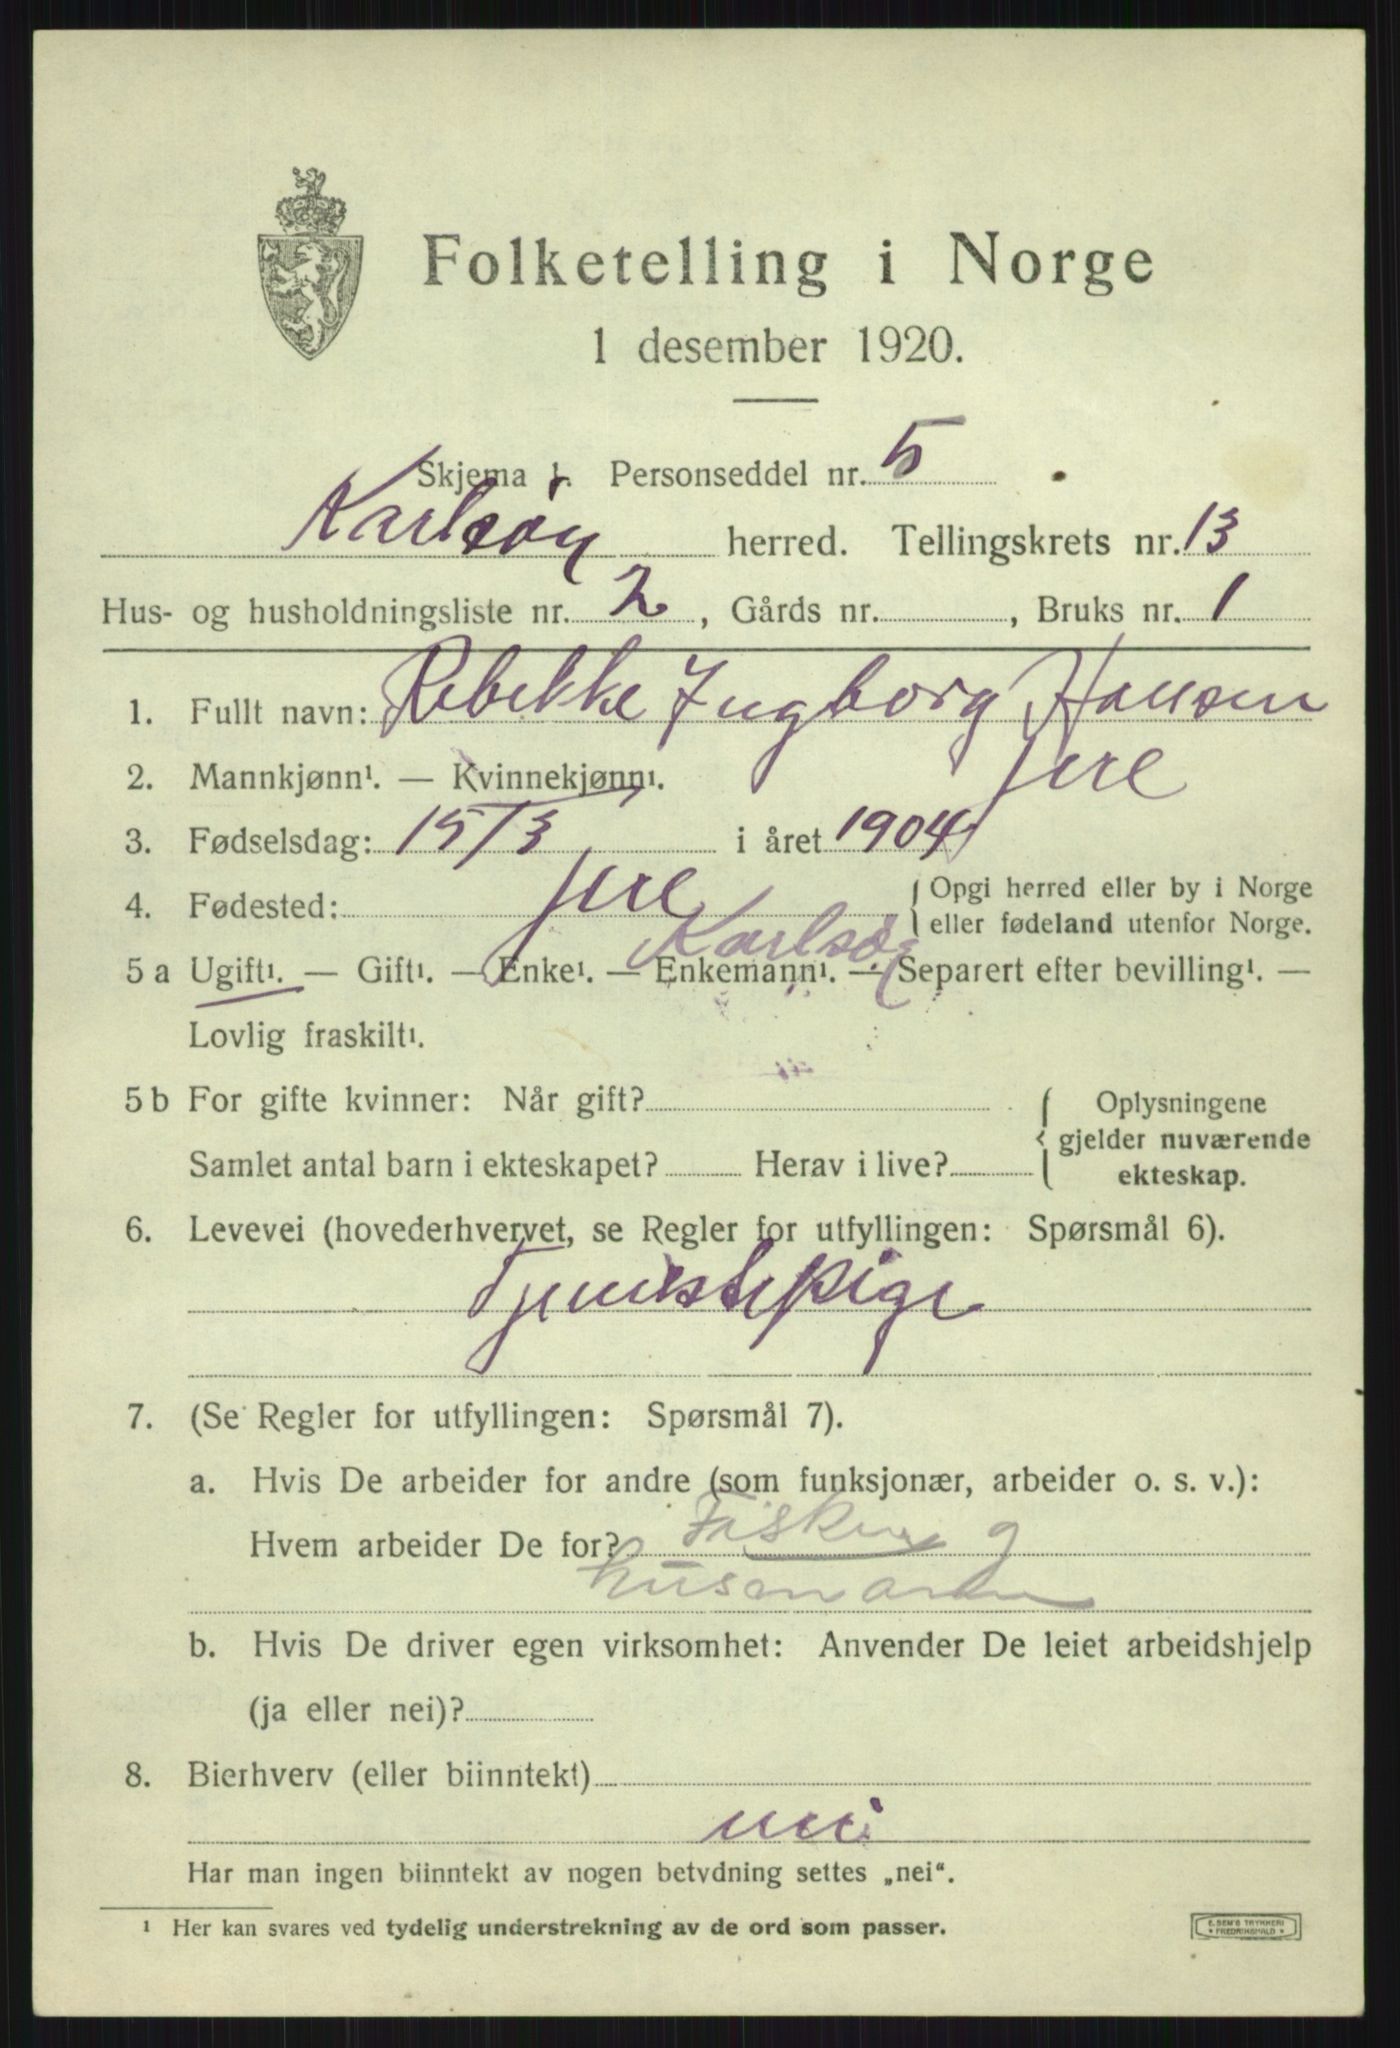 Folketelling i Norge
1 desember 1920.
Skjema 1. Personseddel nr. 5
Karlsöy herred. Tellingskrets nr. 13
Hus- og husholdningsliste nr. 2, Gårds nr. , Bruks nr. 1
1. Fullt navn: Rebekke Ingborg Hansen
2. Mannkjønn¹. — Kvinnekjønn¹.
3. Fødselsdag: 15/3 i året 1904
4. Fødested: { Opgi herred eller by i Norge
eller fødeland utenfor Norge.
Karlsö
5 a Ugift¹. — Gift¹. — Enke¹. — Enkemann¹. — Separert efter bevilling¹. —
Lovlig fraskilt¹.
5 b For gifte kvinner: Når gift? { Oplysningene
gjelder nuværende
Samlet antal barn i ekteskapet? Herav i live? ekteskap.
6. Levevei (hovederhvervet, se Regler for utfyllingen: Spørsmål 6).
Tjenistepige
7. (Se Regler for utfyllingen: Spørsmål 7).
a. Hvis De arbeider for andre (som funksjonær, arbeider o. s. v.):
Hvem arbeider De for? Fisker g
b. Hvis De driver egen virksomhet: Anvender De leiet arbeidshjelp
(ja eller nei)?
8. Bierhverv (eller biinntekt)
nei
Har man ingen biinntekt av nogen betydning settes „nei“.
¹ Her kan svares ved tydelig understrekning av de ord som passer.
E. SEM'S TRYKKERI
FREDRIKSHALD